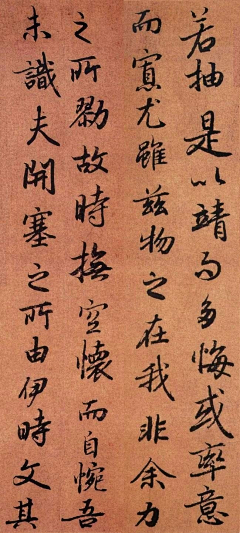 若抽是以靖而多悔或率意
而寡尤雖茲物之在我非余力
之所勠故時撫空懷而自惋吾
未識夫開塞之所由伊時文其